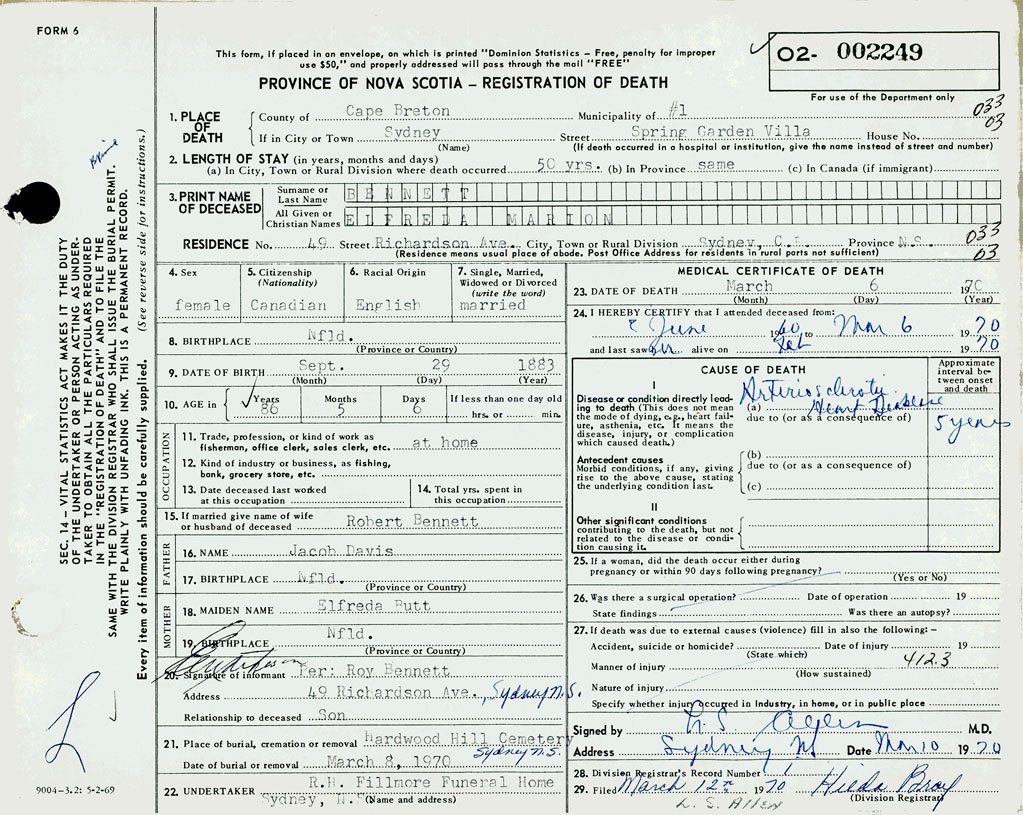 FORM 6
This form, if placed in an envelope, on which is printed "Dominion Statistics – Free, penalty for improper
use $50," and properly addressed will pass through the mail "FREE"
PROVINCE OF NOVA SCOTIA – REGISTRATION OF DEATH
02- 002249
For use of the Department only
033
03
1. PLACE OF DEATH
County of Cape Breton Municipality of #1
If in City or Town Sydney Street Spring Garden Villa House No.
(Name) (If death occurred in a hospital or institution, give the name instead of street and number)
2. LENGTH OF STAY (in years, months and days)
(a) In City, Town or Rural Division where death occurred 50 yrs. (b) In Province same (c) In Canada (if immigrant)
3. PRINT NAME OF DECEASED
Surname or Last Name BENNETT
All Given or Christian Names ELFREDA MARION
RESIDENCE No. 49 Street Richardson Ave. City, Town or Rural Division Sydney, C.B. Province N.S.
(Residence means usual place of abode. Post Office Address for residents in rural parts not sufficient)
033
03
4. Sex female
5. Citizenship (Nationality) Canadian
6. Racial Origin English
7. Single, Married, Widowed or Divorced (write the word) married
8. BIRTHPLACE Nfld.
(Province or Country)
9. DATE OF BIRTH Sept. 29 1883
(Month) (Day) (Year)
10. AGE in Years 86 Months 5 Days 6 If less than one day old hrs. or min.
OCCUPATION
11. Trade, profession, or kind of work as fisherman, office clerk, sales clerk, etc. at home
12. Kind of industry or business, as fishing, bank, grocery store, etc.
13. Date deceased last worked at this occupation
14. Total yrs. spent in this occupation
15. If married give name of wife or husband of deceased Robert Bennett
FATHER
16. NAME Jacob Davis
17. BIRTHPLACE Nfld.
(Province or Country)
MOTHER
18. MAIDEN NAME Elfreda Butt
19. BIRTHPLACE Nfld.
(Province or Country)
20. Signature of informant Per: Roy Bennett
Address 49 Richardson Ave., Sydney N.S.
Relationship to deceased Son
21. Place of burial, cremation or removal Hardwood Hill Cemetery
Sydney N.S.
Date of burial or removal March 8, 1970
22. UNDERTAKER R.H. Fillmore Funeral Home
Sydney, N.S. (Name and address)
MEDICAL CERTIFICATE OF DEATH
23. DATE OF DEATH March 6 1970
(Month) (Day) (Year)
24. I HEREBY CERTIFY that I attended deceased from:
June 1960 to Mar 6 1970
and last saw alive on Feb 1970
CAUSE OF DEATH
Approximate interval between onset and death
I
Disease or condition directly leading to death (This does not mean the mode of dying, e.g., heart failure, asthenia, etc. It means the disease, injury, or complication which caused death.)
(a) Arteriosclerotic Heart Disease
due to (or as a consequence of)
5 years
Antecedent causes
Morbid conditions, if any, giving rise to the above cause, stating the underlying condition last.
(b)
due to (or as a consequence of)
(c)
II
Other significant conditions
contributing to the death, but not related to the disease or condition causing it.
25. If a woman, did the death occur either during pregnancy or within 90 days following pregnancy?
(Yes or No)
26. Was there a surgical operation? Date of operation 19
State findings Was there an autopsy?
27. If death was due to external causes (violence) fill in also the following: –
Accident, suicide or homicide? Date of injury 19
(State which) 412.3
Manner of injury
(How sustained)
Nature of injury
Specify whether injury occurred in industry, in home, or in public place
Signed by L. S. Allen M.D.
Address Sydney NS Date Mar 10 1970
28. Division Registrar's Record Number 1
29. Filed March 12th 1970 Hilda Bray
(Division Registrar)
L. S. Allen
SEC. 14 – VITAL STATISTICS ACT MAKES IT THE DUTY
OF THE UNDERTAKER OR PERSON ACTING AS UNDER-
TAKER TO OBTAIN ALL THE PARTICULARS REQUIRED
IN THE "REGISTRATION OF DEATH" AND TO FILE THE
SAME WITH THE DIVISION REGISTRAR WHO SHALL ISSUE THE BURIAL PERMIT.
WRITE PLAINLY WITH UNFADING INK. THIS IS A PERMANENT RECORD.
Every item of information should be carefully supplied. (See reverse side for instructions.)
9004-3.2: 5-2-69